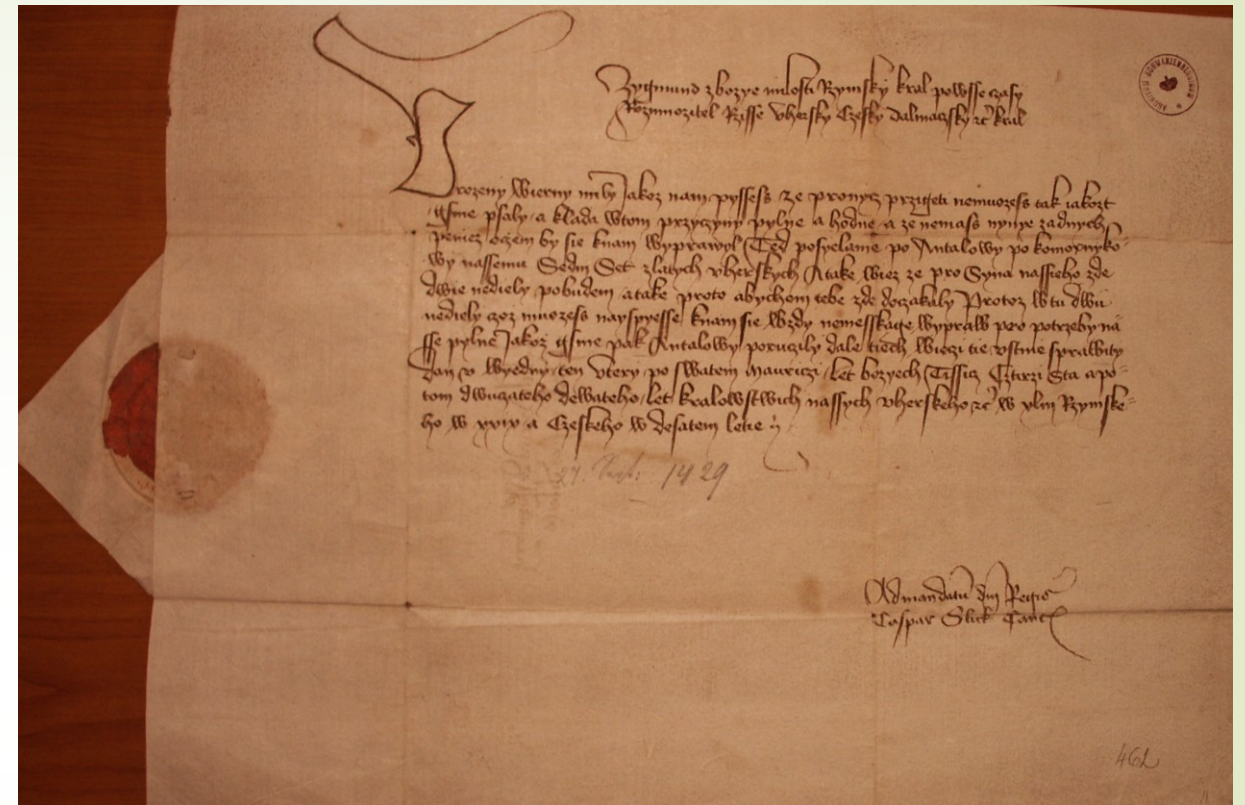 Zygmund z bozye milosti Rzymsky kral powsse czasy
Rozmnozitel Rzisse Vhersky Czesky Dalmaczsky etc kral
Vrozeny Wierny mily Jakoz nam pyssess ze pro nycz przigeti nemuozess tak iakozt
gsme psaly a klada w tom przyczyny pylne a hodne a ze nemass nynye zadnych
peniez oczem by sie knam wyprawyl Ted posyelame po Antalowy po komornyko-
wy nassemu Sedm Set zlatych vherskych A take wiez ze pro Syna nassieho zde
dwie nediely pobudem a take proto abychom tebe zde doczakaly Protoz w tu dwu
nediely czoz muozess nayspyesse knam sie wzdy nemesskage wypraw pro potrzeby na-
sse pylne Jakoz gsme pak Antalowy poruczily dale tiech wieczi tie vstnie sprawity
Dan v Wyedny ten Vtery po swatem Mauriczi Let bozyech Tissicz Cztirzi Sta a po-
tom dwuczateho dewateho Let kralowstwich nassych vherskeho etc w xliii Rzymske-
ho w xix a Czeskeho w desatem letie
27. Sept: 1429
Ad mandatu dni Regis
Caspar Slick Canc
462